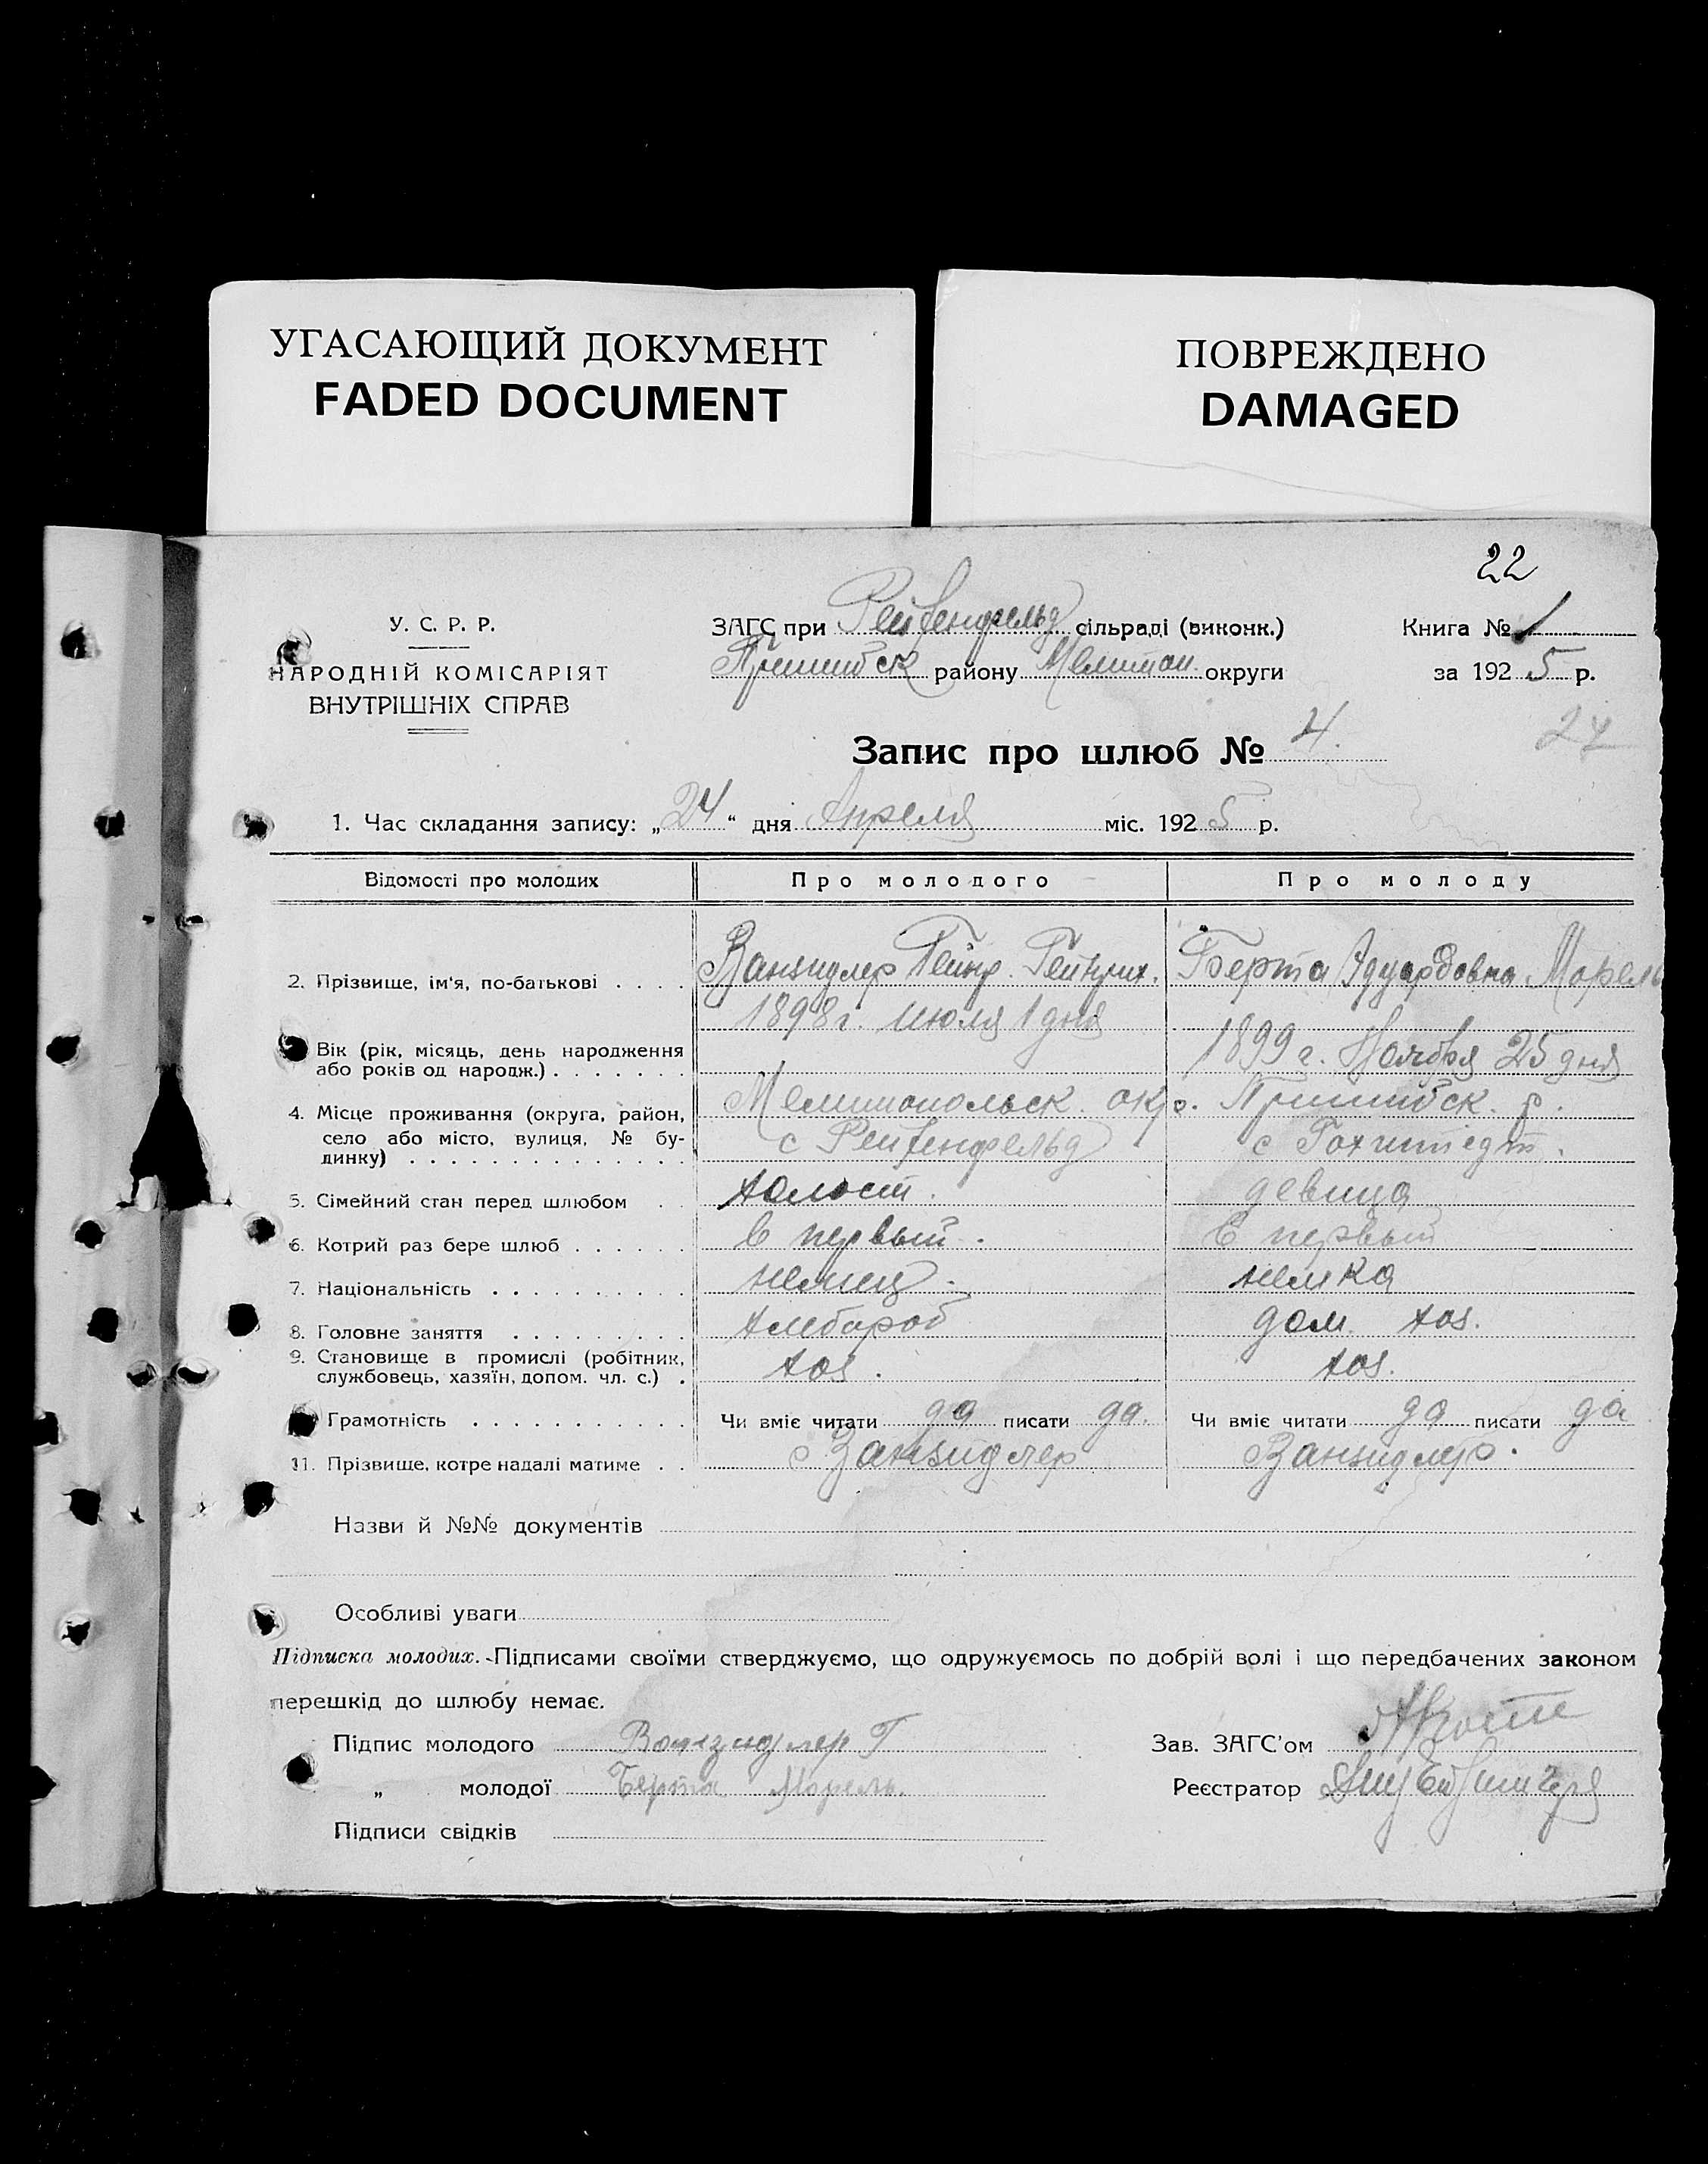 УГАСАЮЩИЙ ДОКУМЕНТ
FADED DOCUMENT
ПОВРЕЖДЕНО
DAMAGED
22
У. С. Р. Р.
НАРОДНІЙ КОМІСАРІЯТ
ВНУТРІШНІХ СПРАВ
ЗАГС при Рейхенфельд сільраді (виконк.)
Пришибск району Мелитоп. округи
Книга № 1
за 1925 р.
Запис про шлюб № 4.
1. Час складання запису: „24“ дня Апреля міс. 1925 р.
Відомості про молодих Про молодого Про молоду
2. Прізвище, ім'я, по-батькові . . . . Занзидлер Гейнр. Гейнрих. Берта Эдуардовна Морель
Вік (рік, місяць, день народження або років од народж.) . . . . . . . 1898 г. июля 1 дня 1899 г. Ноября 25 дня
4. Місце проживання (округа, район, Мелитопольск. окр. Пришибск. р.
село або місто, вулиця, № бу- с Рейхенфельд с Гохштедт.
динку) . . . . . . . . . . . . . .
5. Сімейний стан перед шлюбом . . холост. девица
6. Котрий раз бере шлюб . . . . . . в первый. в первый
7. Національність . . . . . . . . . . немец. немка
8. Головне заняття . . . . . . . . . хлебороб дом. хоз.
9. Становище в промислі (робітник, хоз. хоз.
службовець, хазяїн, допом. чл. с.) .
Грамотність . . . . . . . . . . . Чи вміє читати да писати да. Чи вміє читати да писати да
11. Прізвище, котре надалі матиме . . Занзидлер Занзидлер.
Назви й №№ документів
Особливі уваги
Підписка молодих. Підписами своїми стверджуємо, що одружуємось по добрій волі і що передбачених законом
перешкід до шлюбу немає.
Підпис молодого Занзидлер Г
Зав. ЗАГС'ом
„ молодої Берта Морель.
Реєстратор
Підписи свідків